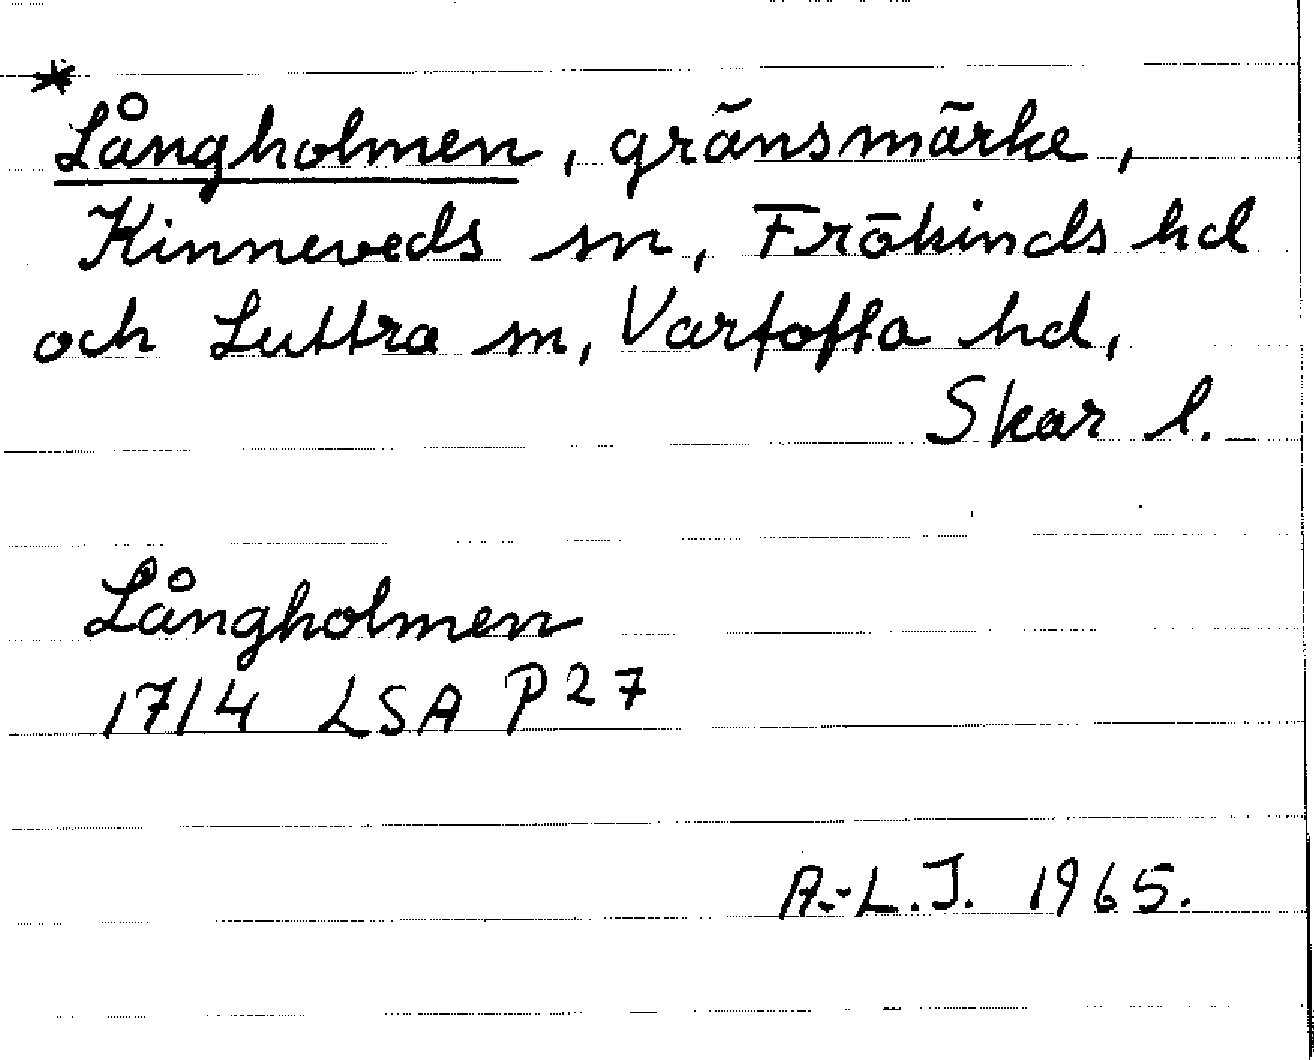 *
Långholmen, gränsmärke,
Kinneveds sn, Frökinds hd
och Luttra sn, Vartofta hd,
Skar l.
Långholmen
1714 LSA P27
A.-L.J. 1965.